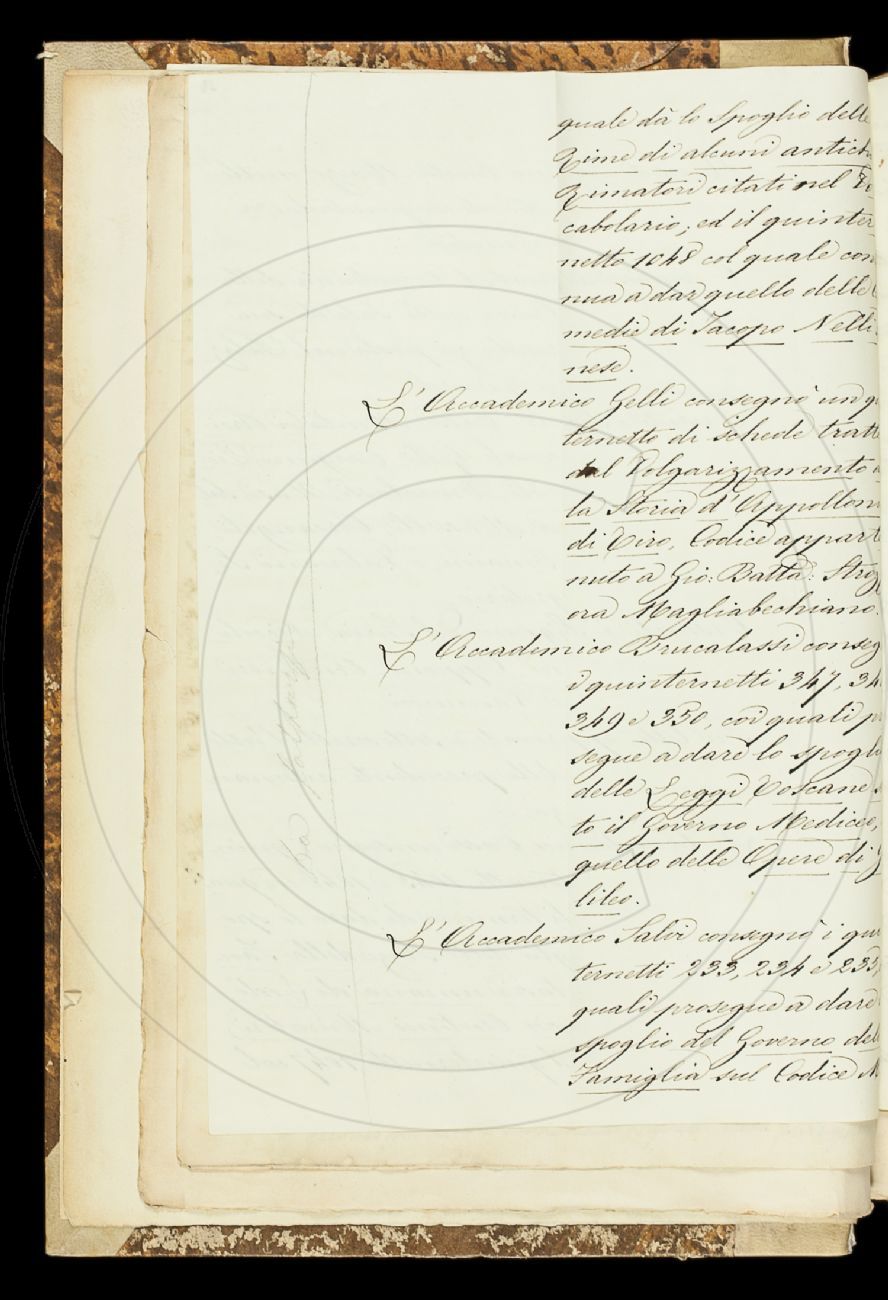 quale dà lo Spoglio delle
Rime di alcuni antichi
Rimatori citati nel Vo
cabolario; ed il quinter
netto 1048 col quale con
nua a dar quello delle
medie di Jacopo Nelli
nese.
L'Accademico Gelli consegnò un qu
ternetto di schede tratte
dal Volgarizzamento
la Storia d'Appollon
di Tiro, Codice apparte
nuto a Gio: Batta: Stroz
ora Magliabechiano.
L'Accademico Brucalassi conseg
i quinternetti 347, 34
349 e 350, coi quali pr
segue a dare lo spoglio
delle Leggi Toscane
to il Governo Mediceo,
quello delle Opere di G
lileo.
L'Accademico Salvi consegnò i qui
ternetti 233, 234 e 235,
quali prosegue a dare
spoglio del Governo del
Famiglia sul Codice M